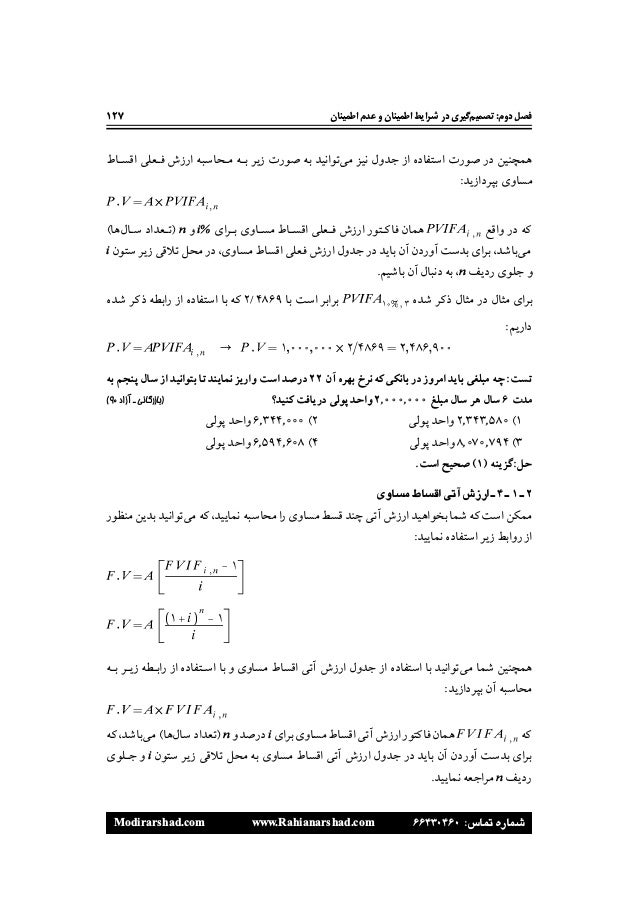 فصل دوم: تصمیم‌گیری در شرایط اطمینان و عدم اطمینان ۱۲۷
همچنین در صورت استفاده از جدول نیز می‌توانید به صورت زیر بـه مـحاسبه ارزش فـعلی اقسـاط
مساوی بپردازید:
P.V = A × PVIFA i,n
که در واقع PVIFA i,n همان فاکـتور ارزش فـعلی اقسـاط مسـاوی بـرای i% و n (تـعداد سـال‌ها)
می‌باشد، برای بدست آوردن آن باید در جدول ارزش فعلی اقساط مساوی، در محل تلاقی زیر ستون i
و جلوی ردیف n، به دنبال آن باشیم.
برای مثال در مثال ذکر شده PVIFA ۱۰%,۳ برابر است با ۲/۴۸۶۹ که با استفاده از رابطه ذکر شده
داریم:
P.V = APVIFA i,n → P.V = ۱,۰۰۰,۰۰۰ × ۲/۴۸۶۹ = ۲,۴۸۶,۹۰۰
تست: چه مبلغی باید امروز در بانکی که نرخ بهره آن ۲۲ درصد است واریز نمایند تا بتوانید از سال پنجم به
مدت ۶ سال هر سال مبلغ ۲,۰۰۰,۰۰۰ واحد پولی دریافت کنید؟ (بازرگانی ـ آزاد ۹۰)
۱) ۲,۳۴۳,۵۸۰ واحد پولی ۲) ۶,۳۴۴,۰۰۰ واحد پولی
۳) ۸,۰۷۰,۷۹۴ واحد پولی ۴) ۶,۵۹۴,۶۰۸ واحد پولی
حل: گزینه (۱) صحیح است.
۲ ـ ۱ ـ ۴ ـ ارزش آتی اقساط مساوی
ممکن است که شما بخواهید ارزش آتی چند قسط مساوی را محاسبه نمایید، که می‌توانید بدین منظور
از روابط زیر استفاده نمایید:
F.V = A [ (FVIF i,n − ۱) / i ]
F.V = A [ ((۱ + i)^n − ۱) / i ]
همچنین شما می‌توانید با استفاده از جدول ارزش آتی اقساط مساوی و با اسـتفاده از رابـطه زیـر بـه
محاسبه آن بپردازید:
F.V = A × FVIFA i,n
که FVIFA i,n همان فاکتور ارزش آتی اقساط مساوی برای i درصد و n (تعداد سال‌ها) می‌باشد، که
برای بدست آوردن آن باید در جدول ارزش آتی اقساط مساوی به محل تلاقی زیر ستون i و جـلوی
ردیف n مراجعه نمایید.
شماره تماس: ۶۶۴۳۰۴۶۰ www.Rahianarshad.com Modirarshad.com